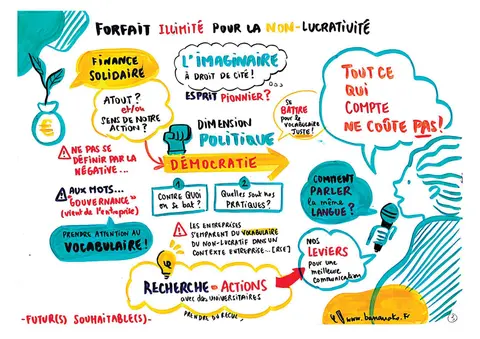 FORFAIT ILLIMITÉ POUR LA NON-LUCRATIVITÉ
FINANCE
SOLIDAIRE
ATOUT ?
et/ou
SENS DE NOTRE
ACTION ?
L'IMAGINAIRE
À DROIT DE CITÉ !
ESPRIT PIONNIER ?
SE
BATTRE
pour le
VOCABULAIRE
JUSTE !
TOUT CE
QUI
COMPTE
NE COÛTE PAS !
DIMENSION
POLITIQUE
DÉMOCRATIE
NE PAS SE
DÉFINIR PAR LA
NÉGATIVE...
AUX MOTS...
"GOUVERNANCE"
(vient de l'entreprise)
PRENDRE ATTENTION AU
VOCABULAIRE !
1
CONTRE QUOI
on se bat ?
2
Quelles sont nos
PRATIQUES ?
LES ENTREPRISES
S'EMPARENT DU VOCABULAIRE
DU NON-LUCRATIF DANS UN
CONTEXTE ENTREPRISE... [RSE]
COMMENT
PARLER
la même
LANGUE ?
NOS
LEVIERS
pour une
meilleure
communication
RECHERCHE - ACTIONS
avec des universitaires
PRENDRE DU RECUL
-FUTUR(S) SOUHAITABLE(S)-